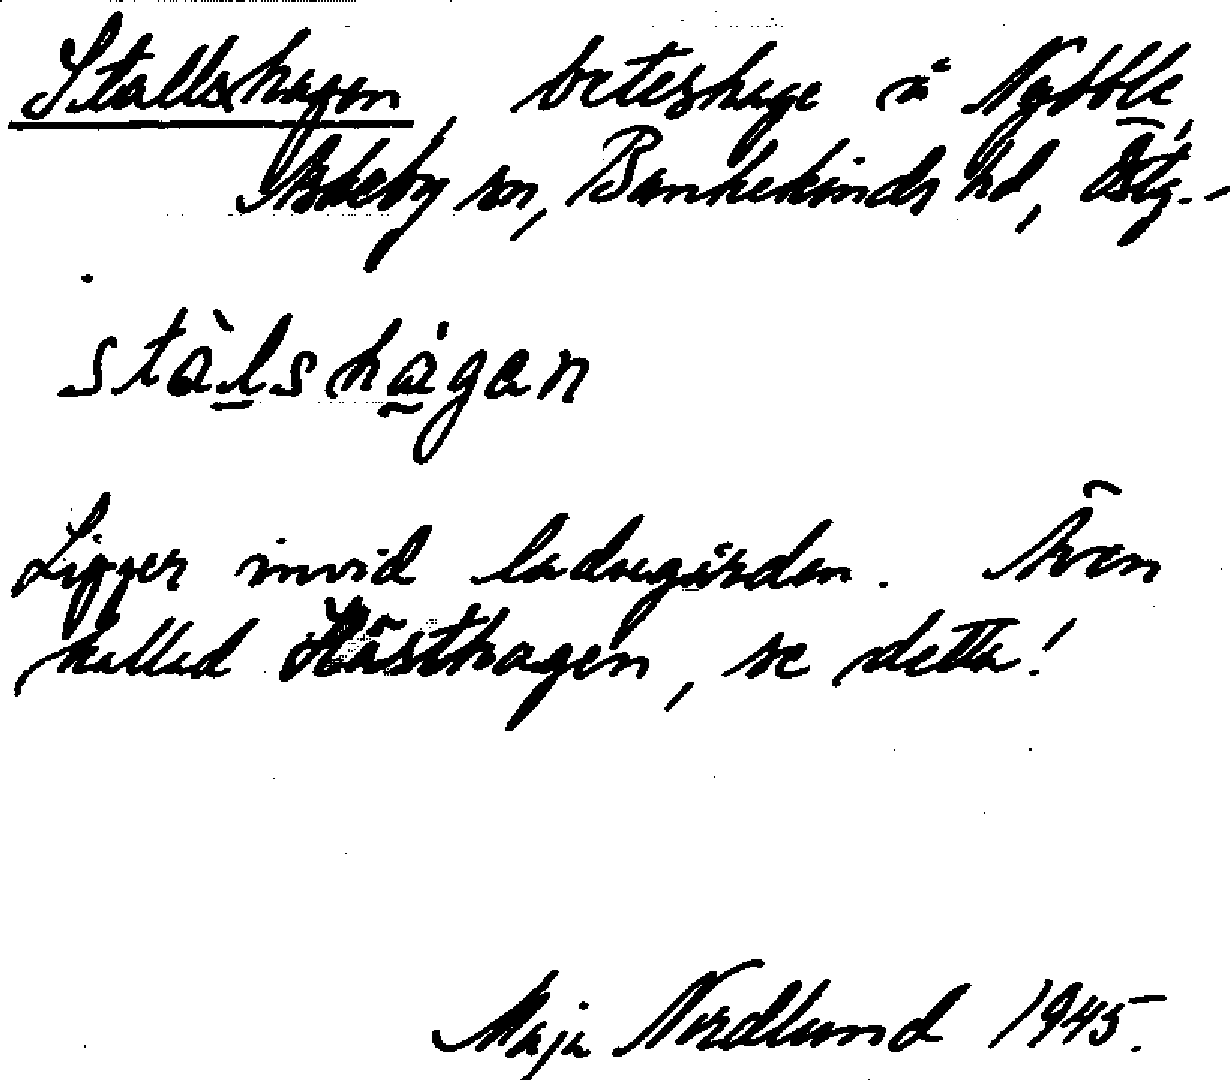 Stallshagen, beteshage å Nybble,
Askeby sn, Bankekinds hd, Östg.-
stàlshagan
Ligger invid ladugården. Även
kallad Hästhagen, se detta!
Maja Nordlund 1945.